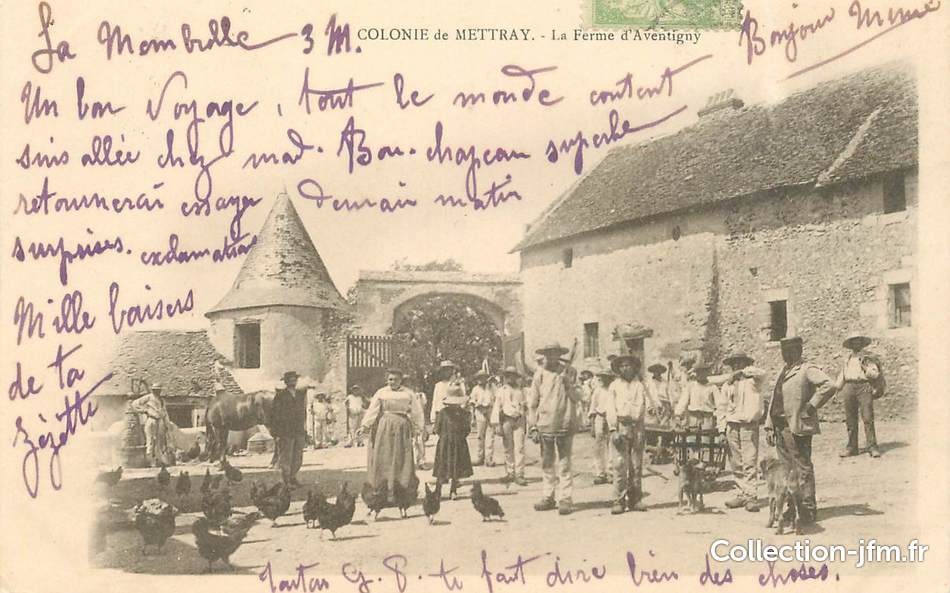 La Membrolle 3 M.
COLONIE de METTRAY. - La Ferme d'Aventigny
Bonjour Mémé
Un bon voyage, tout le monde content
suis allée chez mad. Bou. chapeau superbe
retournerai essayer demain matin
surprises. exclamations
Mille baisers
de ta
Zézette
Tonton G. P. te fait dire bien des choses.
Collection-jfm.fr